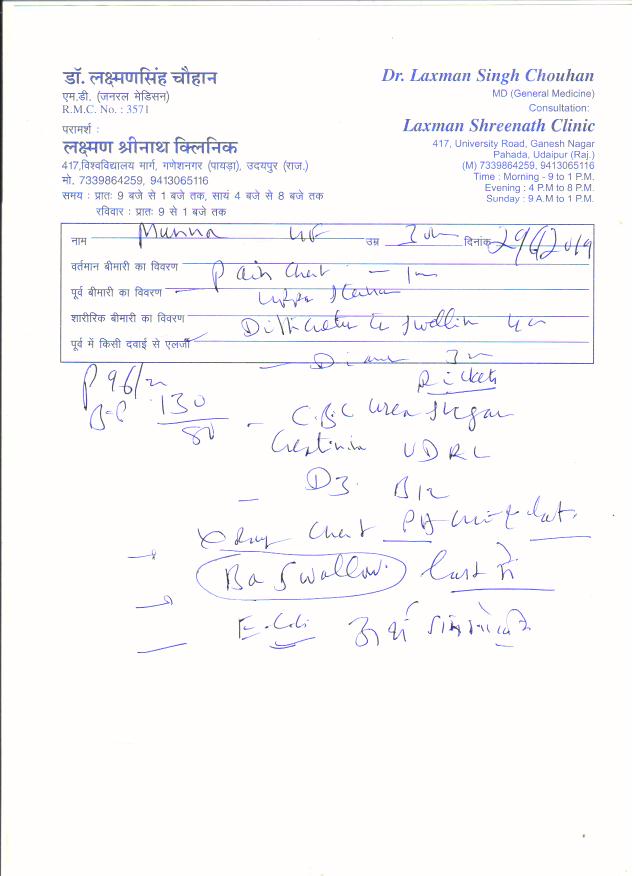 डॉ. लक्ष्मणसिंह चौहान
एम.डी. (जनरल मेडिसन)
R.M.C. No. : 3571
परामर्श :
लक्ष्मण श्रीनाथ क्लिनिक
417,विश्वविद्यालय मार्ग, गणेशनगर (पायड़ा), उदयपुर (राज.)
मो. 7339864259, 9413065116
समय : प्रातः 9 बजे से 1 बजे तक, सायं 4 बजे से 8 बजे तक
रविवार : प्रातः 9 से 1 बजे तक
Dr. Laxman Singh Chouhan
MD (General Medicine)
Consultation:
Laxman Shreenath Clinic
417, University Road, Ganesh Nagar
Pahada, Udaipur (Raj.)
(M) 7339864259, 9413065116
Time : Morning - 9 to 1 P.M.
Evening : 4 P.M to 8 P.M.
Sunday : 9 A.M to 1 P.M.
नाम Munna उम्र दिनांक
वर्तमान बीमारी का विवरण Pain Chest
पूर्व बीमारी का विवरण
शारीरिक बीमारी का विवरण
पूर्व में किसी दवाई से एलर्जी
Rickets
P 96/m
B-P 130/80
- C.B.C Urea Sugar
Creatinin VDRL
- D3. B12
X-Ray Chest PA
Ba Swallow